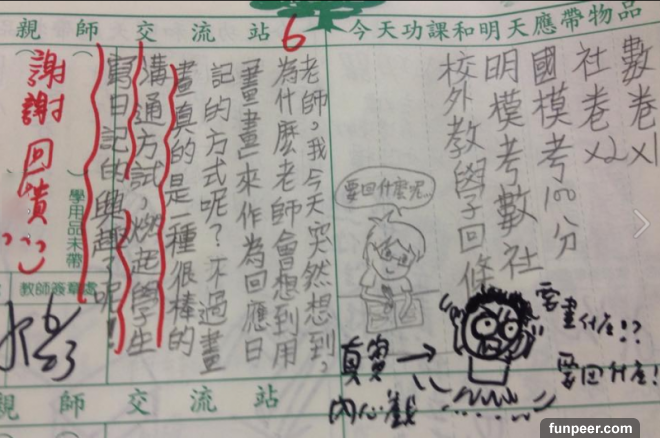 親師交流站
今天功課和明天應帶物品
數卷x1
社卷x2
國模考100分
明模考數社
校外教學子回條
6
老師，我今天突然想到，
為什麼老師會想到用
「畫畫」來作為回應日
記的方式呢？不過畫
畫真的是一種很棒的
溝通方試，燃起學生
寫日記的興趣了呢！
要回什麼呢..
要畫什麼!??
要回什麼!
真實
內心戲
謝謝回饋
學用品未帶
教師簽章處
6/23
親師交流站
funpeer.com